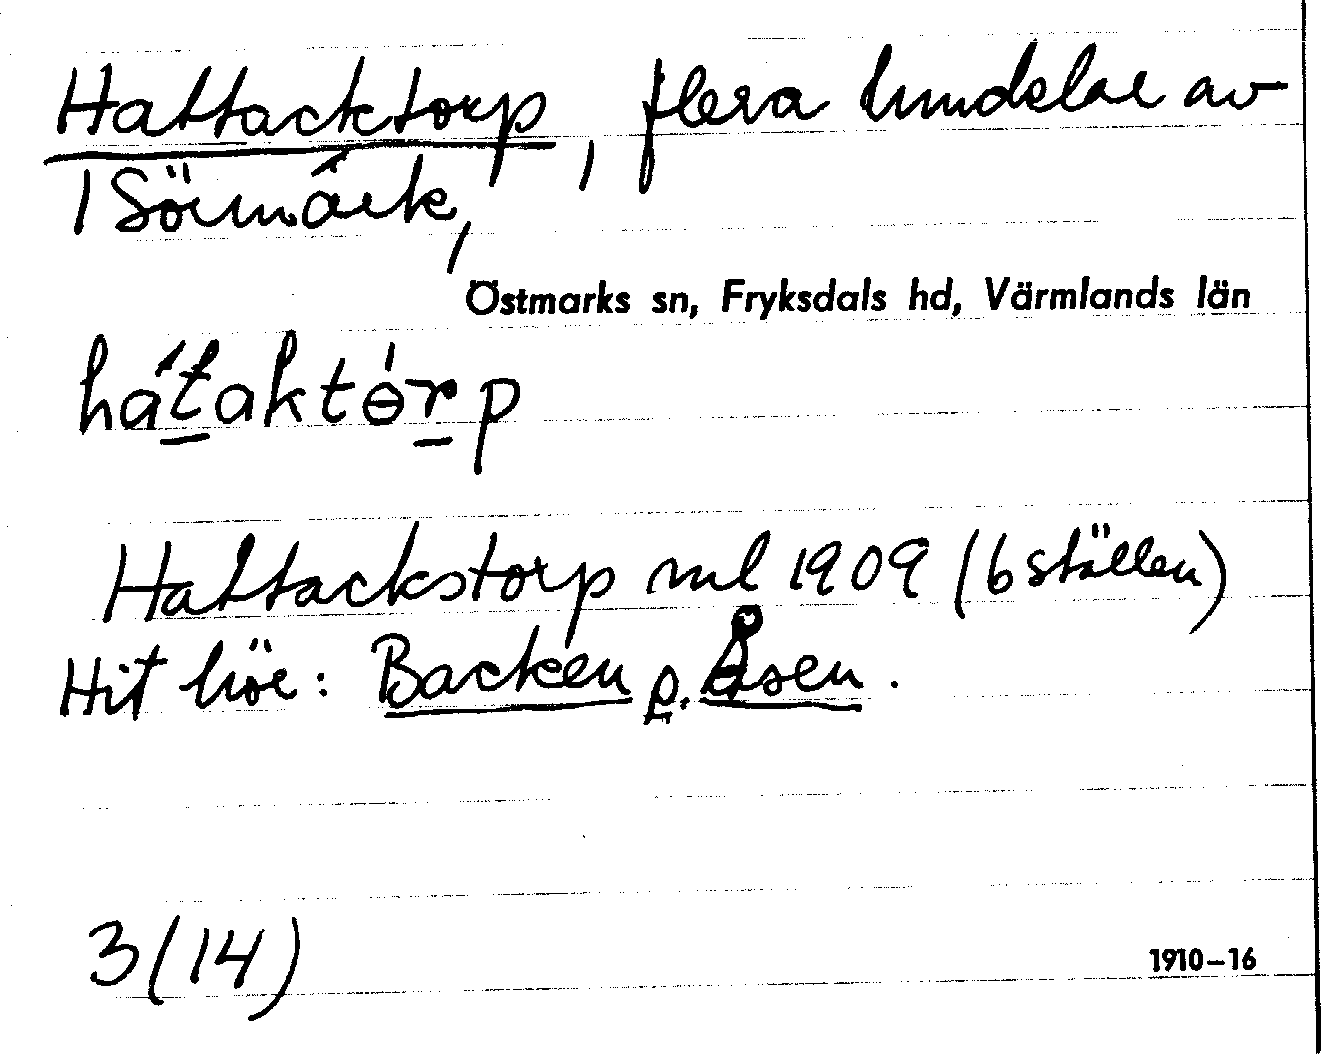 Hattacktorp, flera lundelar av
1 Sörmark,
Östmarks sn, Fryksdals hd, Värmlands län
hátaktórp
Hattackstorp ml 1909 (6 ställen)
Hit hör: Backen o. Åsen.
3(14)
1910–16